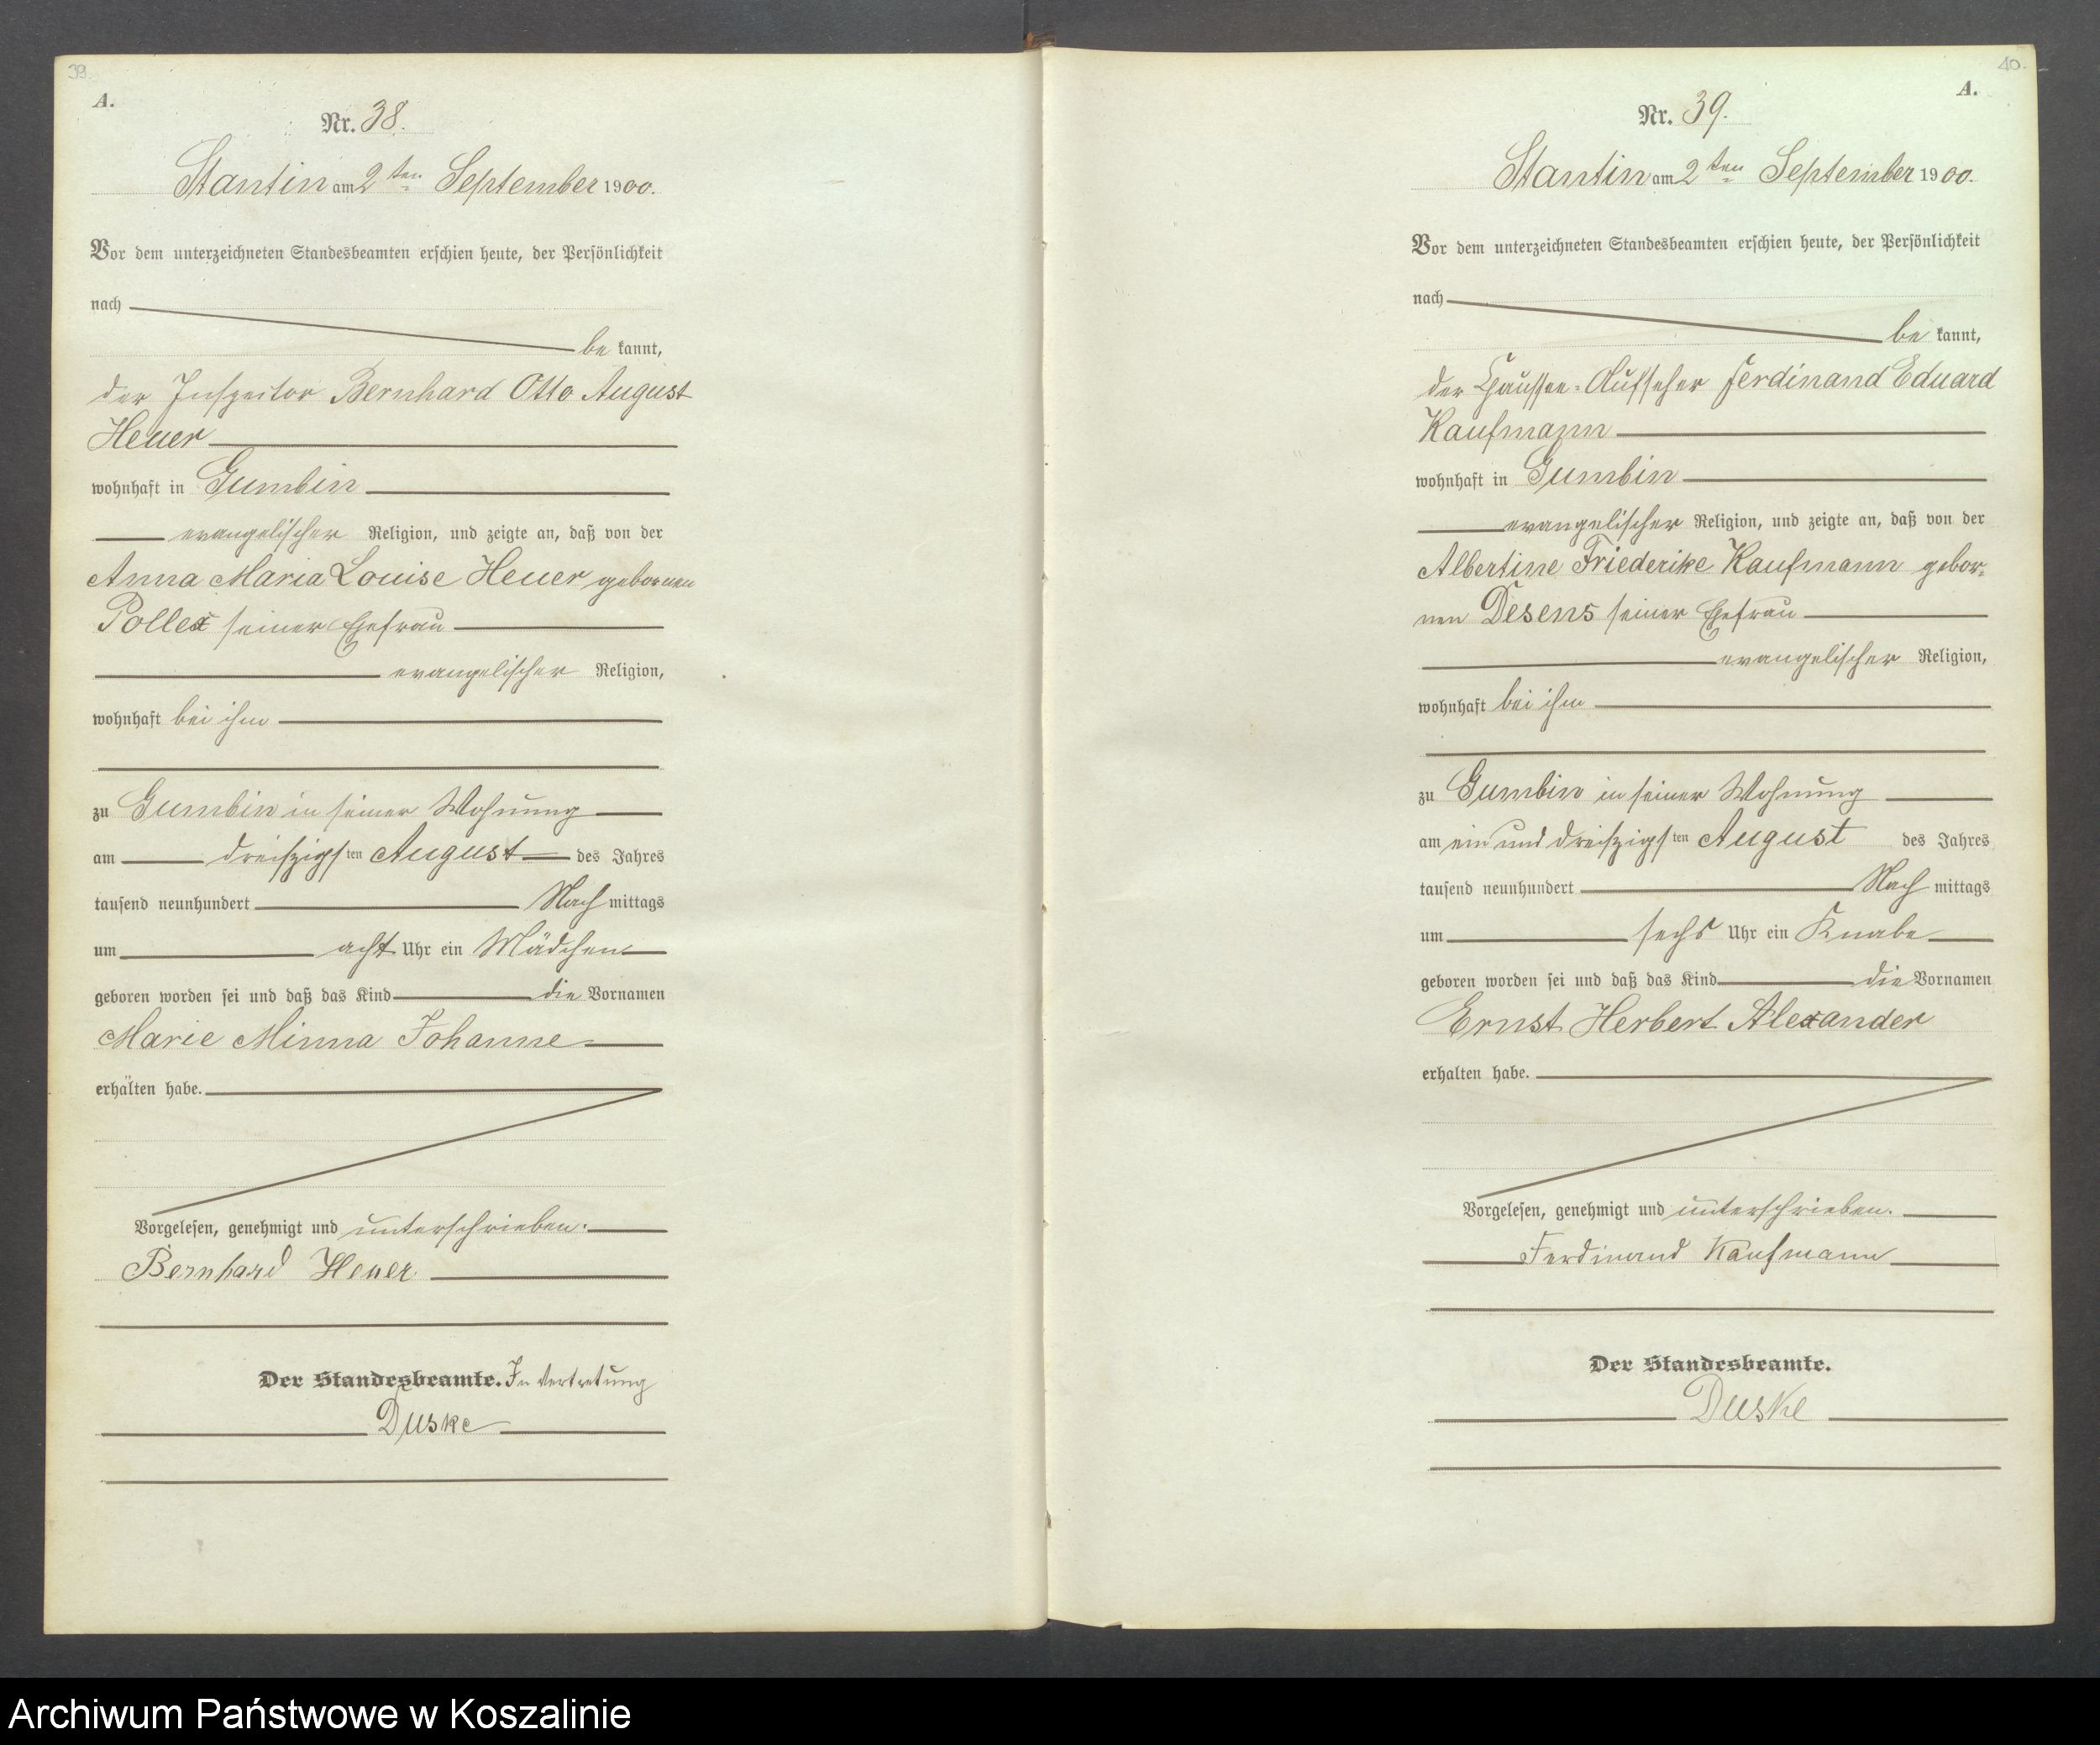 39.
A.
Nr. 38.
Stantin am 2ten September 1900.
Vor dem unterzeichneten Standesbeamten erschien heute, der Persönlichkeit
nach
be kannt,
der Inspector Bernhard Otto August
Heuer
wohnhaft in Gumbin
evangelischer Religion, und zeigte an, daß von der
Anna Maria Louise Heuer gebornen
Pollex seiner Ehefrau
evangelischer Religion,
wohnhaft bei ihm
zu Gumbin in seiner Wohnung
am dreiszigsten August des Jahres
tausend neunhundert Nach mittags
um acht Uhr ein Mädchen
geboren worden sei und daß das Kind die Vornamen
Marie Minna Johanne
erhalten habe.
Vorgelesen, genehmigt und unterschrieben.
Bernhard Heuer.
Der Standesbeamte. In Vertretung
Duske
40.
A.
Nr. 39.
Stantin am 2ten September 1900.
Vor dem unterzeichneten Standesbeamten erschien heute, der Persönlichkeit
nach
be kannt,
der Chaussee-Aufseher Ferdinand Eduard
Kaufmann
wohnhaft in Gumbin
evangelischer Religion, und zeigte an, daß von der
Albertine Friederike Kaufmann gebor-
nen Desens seiner Ehefrau
evangelischer Religion,
wohnhaft bei ihm
zu Gumbin in seiner Wohnung
am ein und dreiszigsten August des Jahres
tausend neunhundert Nach mittags
um sechs Uhr ein Knabe
geboren worden sei und daß das Kind die Vornamen
Ernst Herbert Alexander
erhalten habe.
Vorgelesen, genehmigt und unterschrieben.
Ferdinand Kaufmann
Der Standesbeamte.
Duske
Archiwum Państwowe w Koszalinie